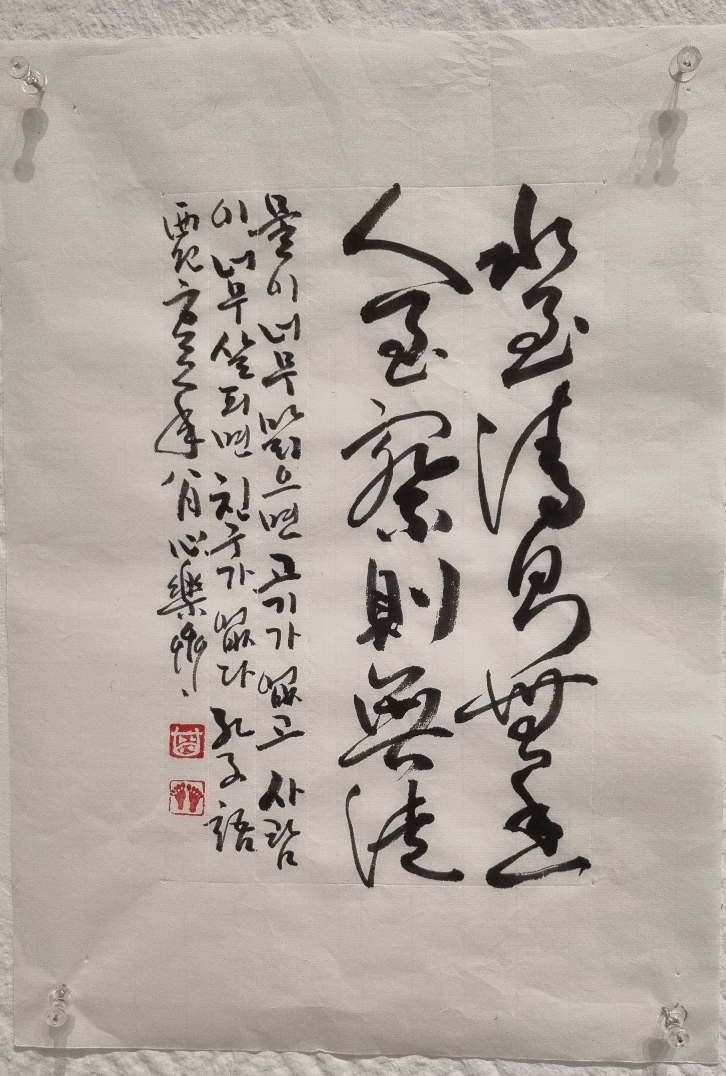 水至清則無魚
人至察則無徒
물이 너무 맑으면 고기가 없고 사람
이 너무 살피면 친구가 없다 孔子語
西紀 年 八月 心樂